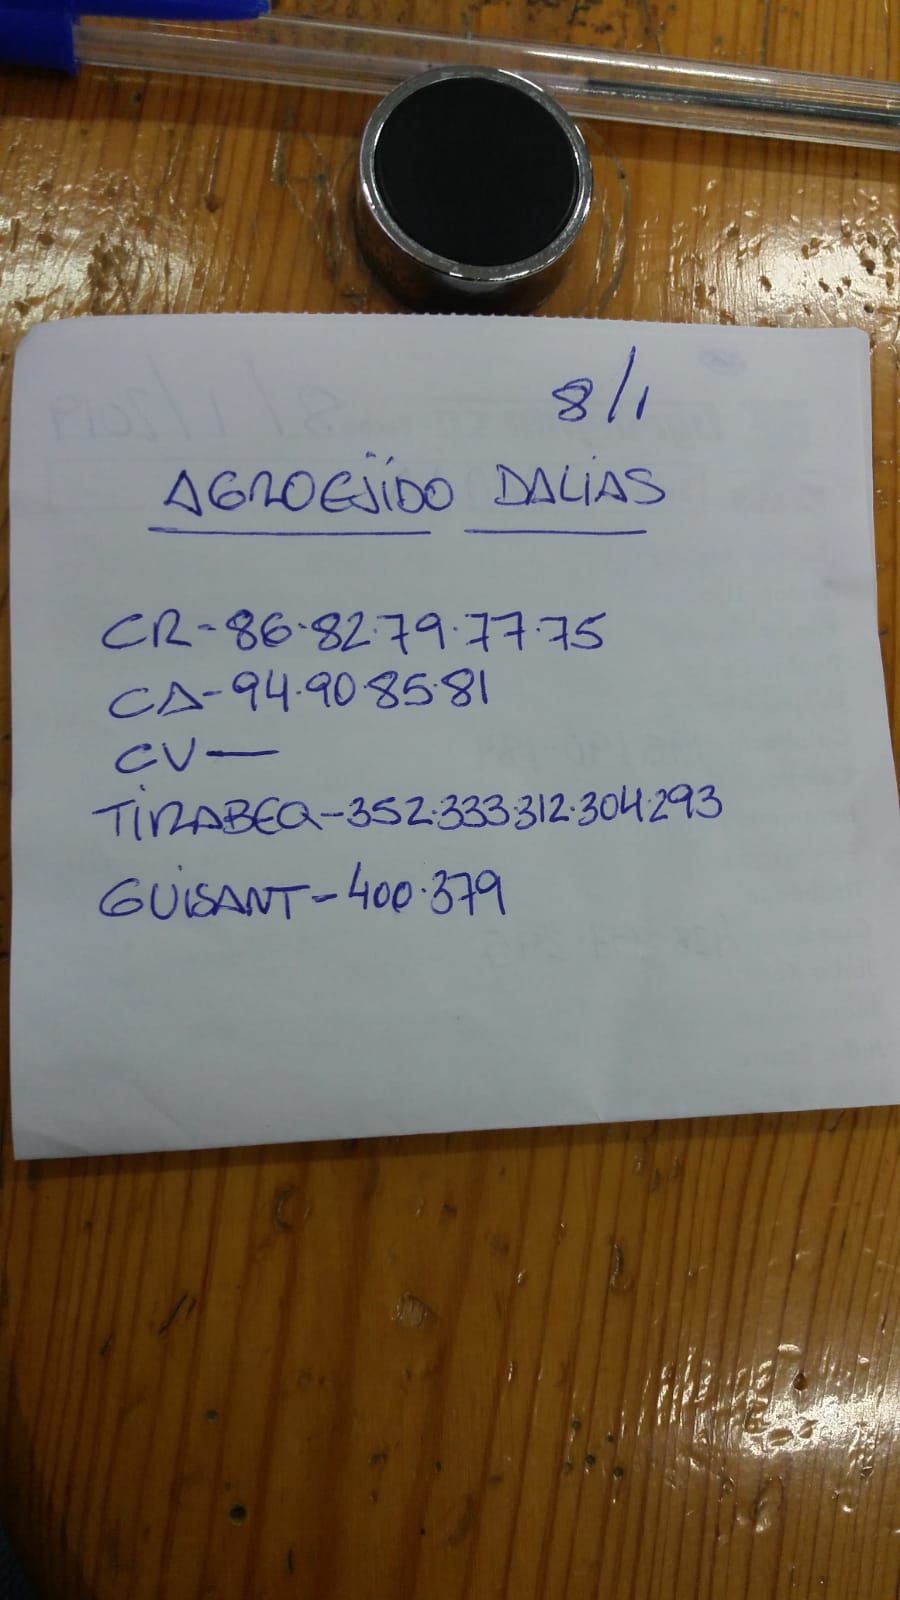 8/1
AGROEJIDO DALIAS
CR-86.82.79.77.75
CA-94.90.85.81
CV—
TIRABEQ-352.333.312.304.293
GUISANT-400.379